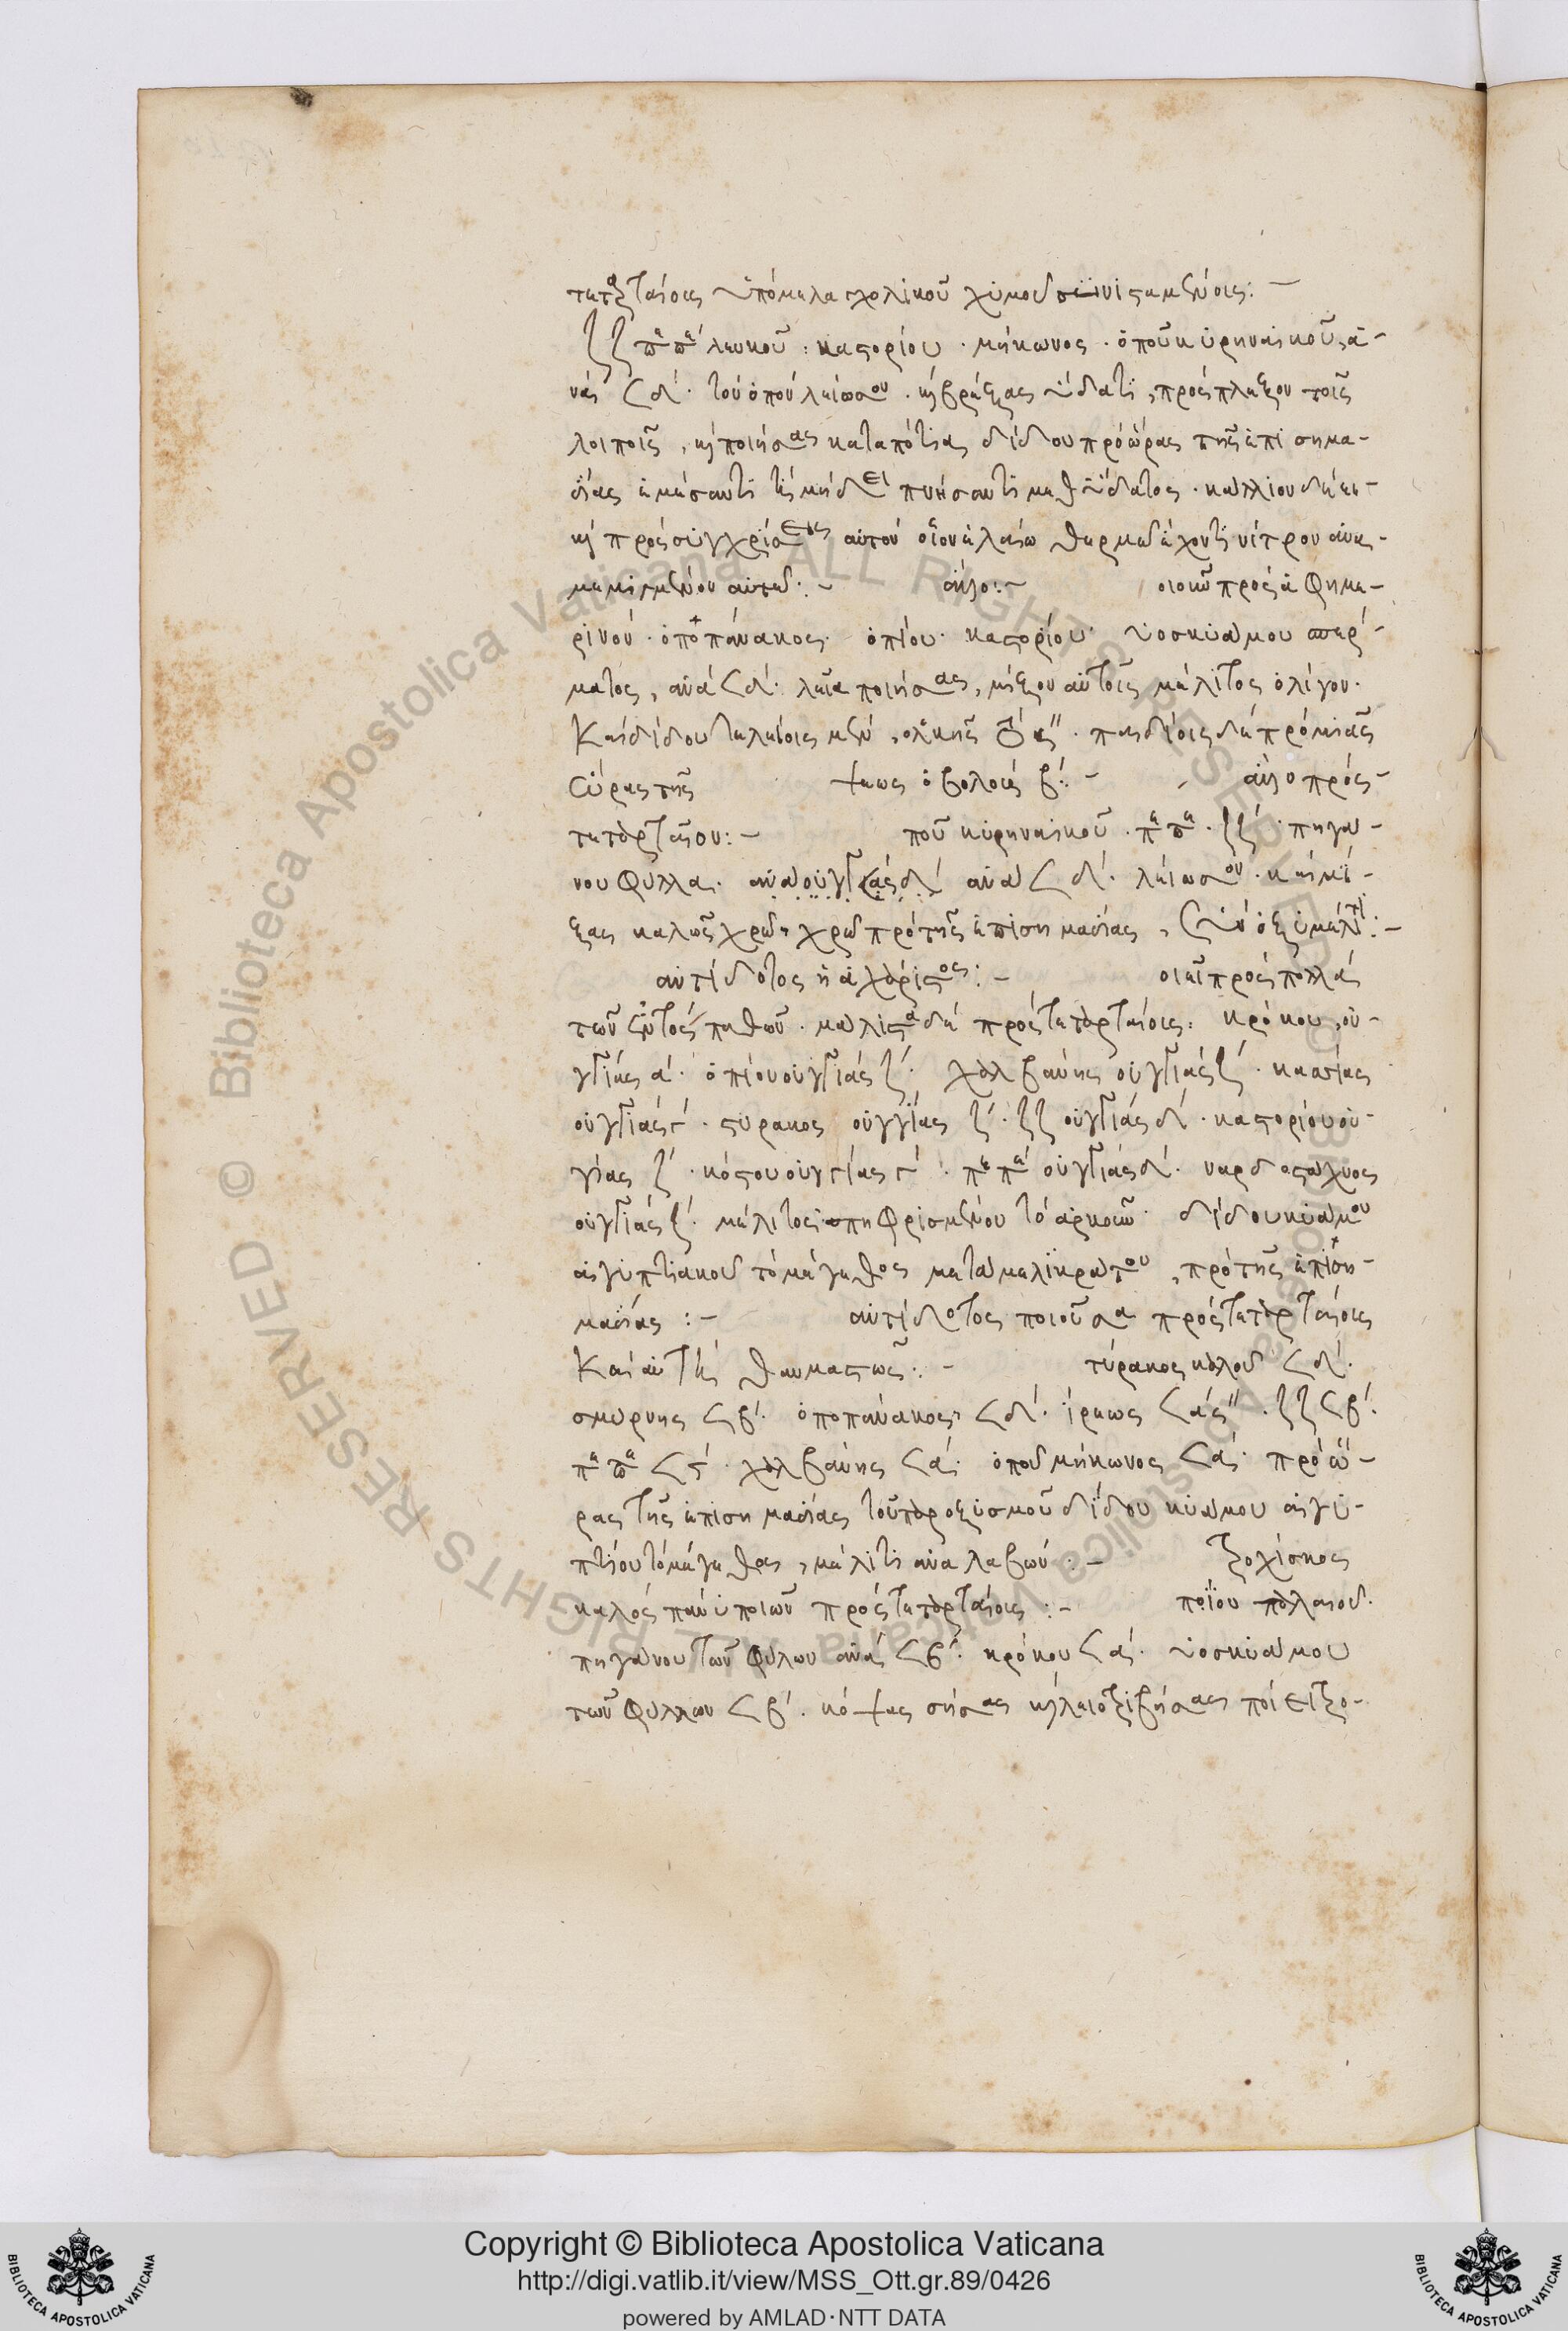 τεταρταίοις ὑπὸ μελαγχολικοῦ χυμοῦ συνισταμένοις: —
ζζ πεπε λευκοῦ · καστορίου · μήκωνος · ὀποῦ κυρηναϊκοῦ, ἀ-
νά 𐅻 δ΄. τοῦ ὀποῦ λείωσον · καὶ βρέξας ὕδατι, πρόσπλεξον τοῖς
λοιποῖς, καὶ ποιήσας καταπότια δίδου πρὸ ὥρας τῆς ἐπισημα-
σίας
καὶ πρὸς συγχρίσεις αὐτοῦ οἷον ἐλαίω θερμῶ ἔχοντι νίτρον ἀνα-
μεμιγμένον αὐτῶ: — ἄλλο: — ποιοῦν πρὸς ἀφημε-
ρινόν · ὀποπάνακος · ὀπίου · καστορίου · ὑοσκυάμου σπέρ-
ματος, ἀνά 𐅻 δ΄. λεῖα ποιήσας, μίξον αὐτοῖς μέλιτος ὀλίγον ·
Καὶ δίδου τελείοις μὲν, ὁλκῆς · παιδίοις δὲ πρὸ μιᾶς
ὥρας τῆς ὀβολοὺς β΄: — ἄλλο πρὸς
τεταρταῖον: — ποῦ κυρηναϊκοῦ · πεπε · ζζ · πηγά-
νου φύλλα · ἀνὰ οὐγγίας δ΄ ἀνὰ 𐅻 δ΄. λείωσον · καὶ μί-
ξας καλῶς χρῶ, χρῶ πρὸ τῆς ἐπισημασίας, σὺν ὀξυμέλιτι: —
ἀντίδοτος ἡ ἀχάριστος: — οιεῖ πρὸς πολλὰ
τῶν ἐντὸς παθῶν · μάλιστα δὲ πρὸς τεταρταίοις: κρόκου, οὐ-
γγίας α΄. ὀπίου οὐγγίας ζ΄. χαλβάνης οὐγγίας ζ΄. κασίας
οὐγγίας γ΄. στύρακος οὐγγίας ζ΄. ζζ οὐγγίας δ΄. καστορίου οὐ-
γίας ζ΄. κόστου οὐγγίας γ΄. πεπε οὐγγίας δ΄. ναρδοστάχυος
οὐγγίας ζ΄. μέλιτος ἀπηφρισμένου τὸ ἀρκοῦν · δίδου κυάμου
αἰγυπτιακοῦ τὸ μέγεθος μετὰ μελικράτου, πρὸ τῆς ἐπιση-
μασίας: — ἀντίδοτος ποιοῦσα πρὸς τεταρταίοις
Καὶ αὐτὴ θαυμαστῶς: — τύρακος καλοῦ 𐅻 δ΄.
σμύρνης 𐅻 β΄. ὀποπάνακος, 𐅻 δ΄. ἴρεως 𐅻 α ς΄΄. ζζ 𐅻 β΄.
πεπε 𐅻 γ΄. χαλβάνης 𐅻 α΄. ὀποῦ μήκωνος 𐅻 α΄. πρὸ ὥ-
ρας τῆς ἐπισημασίας τοῦ παροξυσμοῦ δίδου κυάμου αἰγυ-
πτίου τὸ μέγεθος, μέλιτι ἀναλαβών: — τροχίσκος
καλὸς πάνυ ποιῶν πρὸς τεταρταίοις: — πίου παλαιοῦ.
πηγάνου τῶν φύλων ἀνά 𐅻 β΄. κρόκου 𐅻 α΄. ὑοσκυάμου
τῶν φύλλων 𐅻 β΄. κόψας σήσας καὶ λειοτριβήσας ποίει τρο-
Copyright © Biblioteca Apostolica Vaticana
http://digi.vatlib.it/view/MSS_Ott.gr.89/0426
powered by AMLAD·NTT DATA